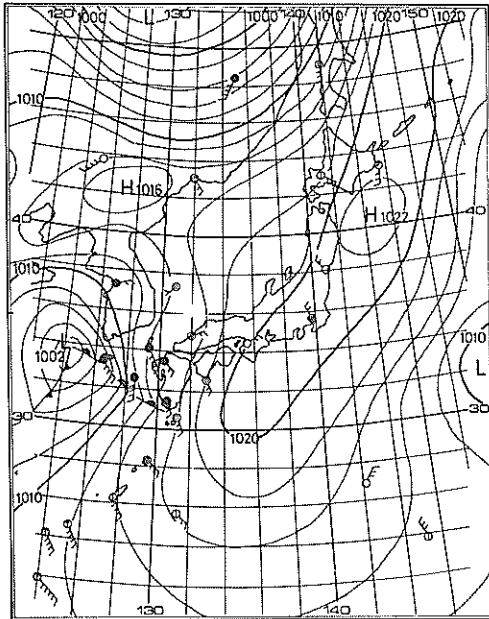 120 1000 L 130 1000 140 1010 1020 150 1020
1010
H 1016
H 1022
40 40
1010
1002
1010
L
30 30
1020
1010
130 140